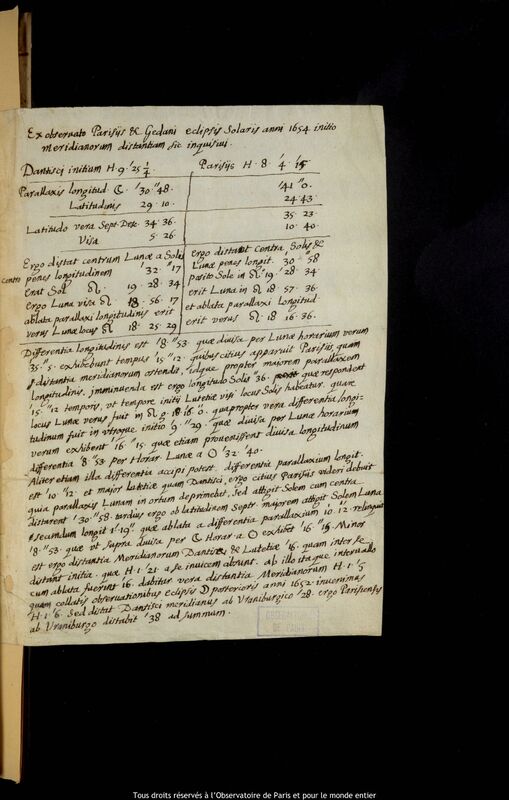 Ex observato Parisijs & Gedani eclipsis Solaris anni 1654 initio
meridianorum distantiam sic inquisivi.
Dantisci initium H 9 '25 ¼ Parisijs H. 8. '4 "15
Parallaxis longitud ☾. '30 "48. '41 "0.
Latitudinis 29 . 10. 24 43
Latitudo vera Sept. Dese. 34 36. 35 . 23
Visa 5 . 26 10 . 40.
Ergo distat centrum Lunæ a Solis
centro penes longitudinem '32 "17
erat Sol ♌. 19 . 28 . 34
ergo Luna visa ♌ 18 . 56 . 17
ablata parallaxi longitudinis erit
verus Lunæ locus ♌ 18 . 25 . 29
Ergo distant centra Solis &
Lunæ penes longit. 30 . 58
posito Sole in ♌ 19 . 28 . 34
erit Luna in ♌ 18 . 57 . 36.
et ablata parallaxi longitud.
erit verus ♌. 18 16 . 36.
Differentia longitudinis est '8 "53 quæ diuisa per Lunæ horarium verum
35 . 5. exhibebunt tempus '15 "12. quibus citius apparuit Parisijs, quam
distantia meridianorum ostendit, idque propter majorem parallaxem
longitudinis. imminuenda est ergo longitudo Solis "36. quæ respondent
15. "12 temporis, vt tempore initij Lutetiæ visi locus Solis habeatur. quare
locus Lunæ verus fuit in ♌ 18 16 0. quapropter vera differentia longi-
tudinum fuit in vtroque initio 9 "29. quæ diuisa per Lunæ horarium
verum exhibent '16 "15. quæ etiam prouenissent diuisa longitudinum
differentia '8 "53 per Horar. Lunæ a ☉ '32 "40.
Aliter etiam illa differentia accipi potest. differentia parallaxium longit.
est '10 "12. et major Lutetiæ quam Dantisci, ergo citius Parisijs videri debuit
quia parallaxis Lunam in ortum deprimebat, sed attigit Solem cum centra
distarent '30 "58. tardius ergo ob latitudinem Septr. majorem attigit Solem Luna
secundum longit 1 '19" quæ ablata a differentia parallaxium 10 12. relinquit
'8 "53 quæ vt supra diuisa per ☾ Horar. a ☉ exhibet '16 "15. Minor
est ergo distantia Meridianorum Dantisci & Lutetiæ '16. quam inter se
distant initia. quæ H. 1. 21 a se inuicem absunt. Ab illo itaque interuallo
cum ablata fuerint 16. dabitur vera distantia Meridianorum H. 1 . '5
quam collatis observationibus eclipsis posterioris anni 1652. inuenimus
H. 1 . '6. Sed distat Dantisci meridianus ab Vraniburgico '28. ergo Parisiensis
ab Vraniburgo distabit '38 ad summum.
OBSERVATOIRE
DE PARIS
Tous droits réservés à l'Observatoire de Paris et pour le monde entier